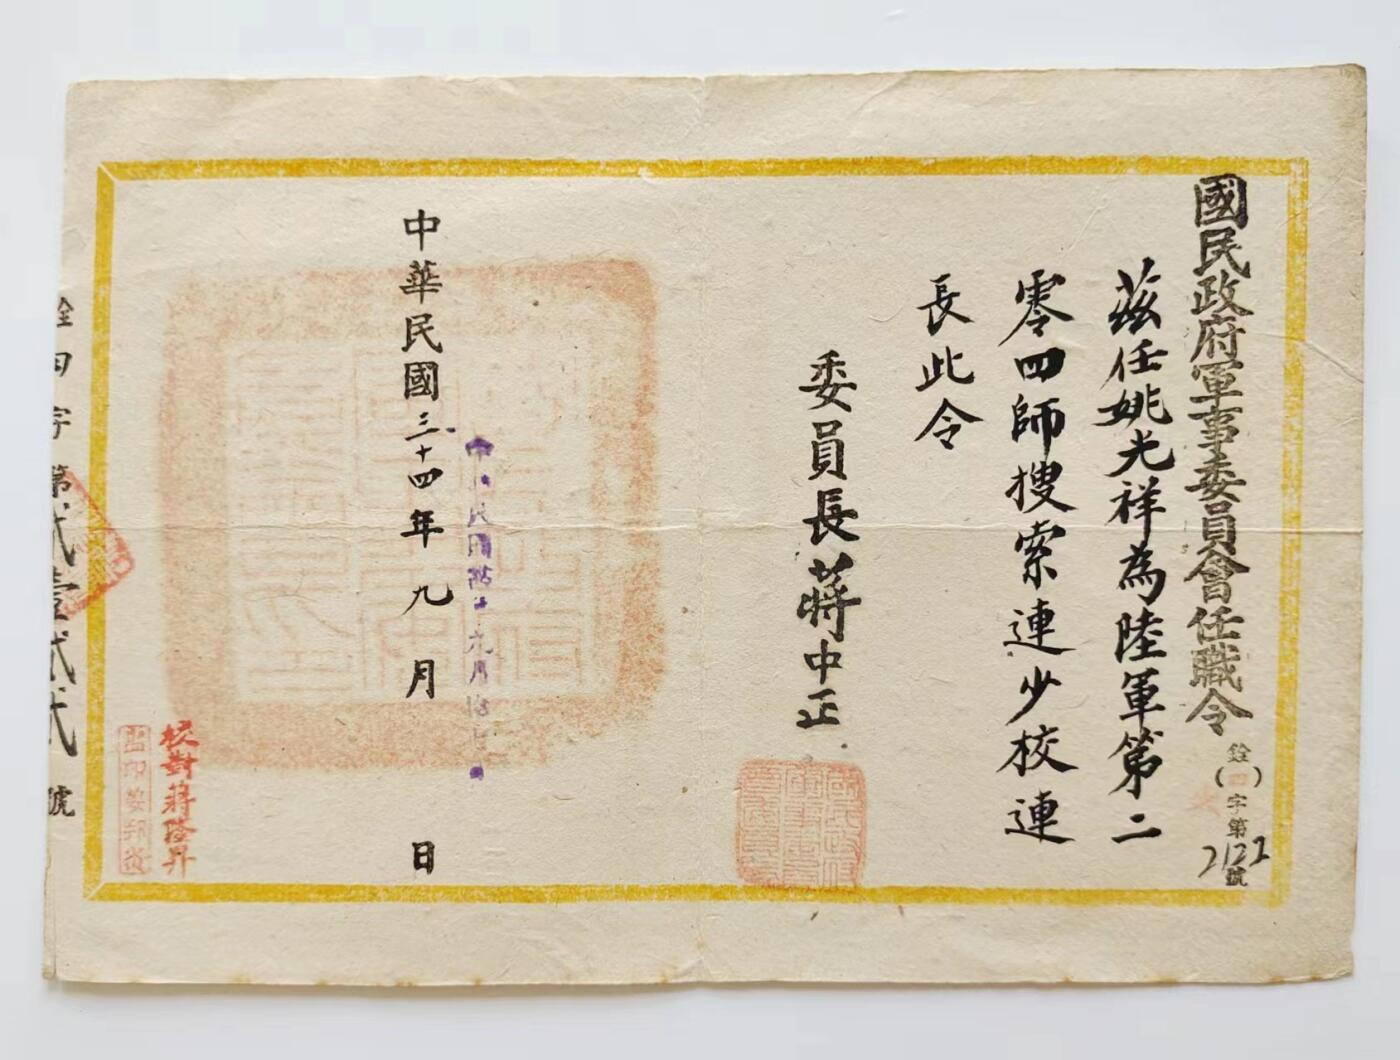 國民政府軍事委員會任職令
銓(四)字第2122號
茲任姚光祥為陸軍第二
零四師搜索連少校連
長此令
委員長蔣中正
中華民國三十四年九月 日
校對蔣陞昇
監印
銓四字第貳壹貳貳號